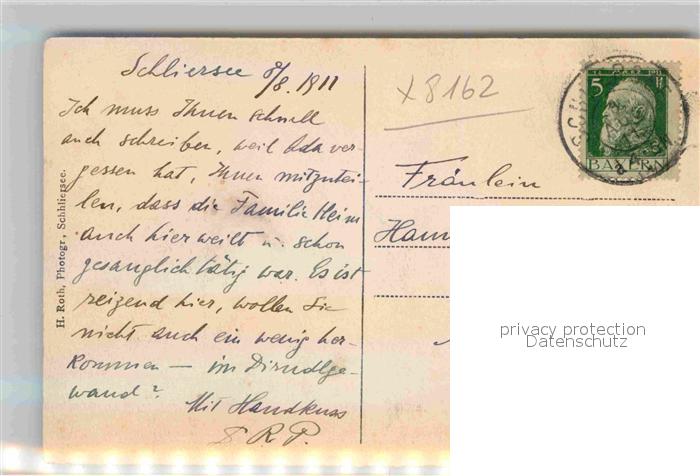 Schliersee 8/8. 1911
Ich muss Ihnen schnell
auch schreiben, weil Ada ver-
gessen hat, Ihnen mitzutei-
len, dass die Familie Heim
auch hier weilt u. schon
gesanglich tätig war. Es ist
reizend hier, wollen Sie
nicht auch ein wenig her-
kommen — im Dirndlge-
wand?
Mit Handkuss
R. P.
H. Roth, Photogr., Schliersee.
x 8162
5
BAYERN
Fräulein
privacy protection
Datenschutz